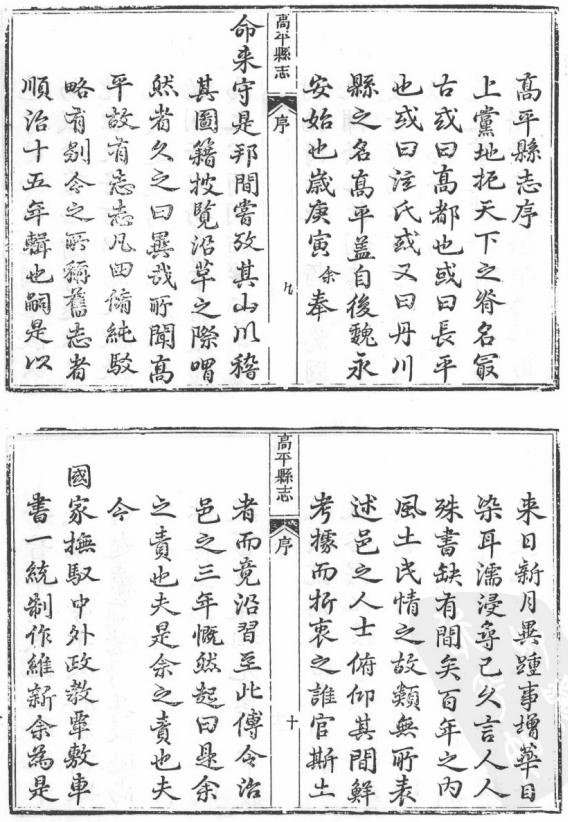 高平縣志序
上黨地扼天下之脊名㝡
古或曰高都也或曰長平
也或曰泫氏或又曰丹川
縣之名高平蓋自後魏永
安始也歲庚寅余奉
高平縣志
序
九
命来守是邦間嘗攷其山川稽
其圖籍披覽沿革之際喟
然者久之曰異哉所聞高
平故有志志凡四脩純駁
略有別今之所稱舊志者
順治十五年輯也嗣是以
来日新月異踵事增華目
染耳濡浸尋已久言人人
殊書缺有間矣百年之內
風土民情之故類無所表
述邑之人士俯仰其間鮮
考據而折衷之誰官斯土
高平縣志
序
十
者而竟沿習至此傅令治
邑之三年慨然起曰是余
之責也夫是余之責也夫
今
國家撫馭中外政教覃敷車
書一統制作維新余為是